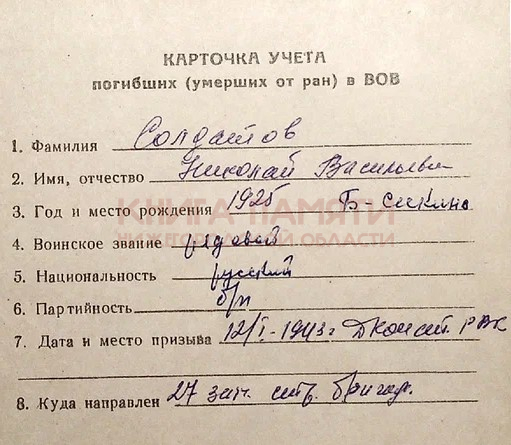 КАРТОЧКА УЧЕТА
погибших (умерших от ран) в ВОВ
1. Фамилия Солдатов
2. Имя, отчество Николай Васильеви
3. Год и место рождения 1925 Б-Сикино
КНИГА ПАМЯТИ
4. Воинское звание рядовой
НИЖЕГОРОДСКОЙ ОБЛАСТИ
5. Национальность русский
6. Партийность б/п
7. Дата и место призыва 12/I-1943г ДКонст. РВК
8. Куда направлен 27 зап. стр. бригад.